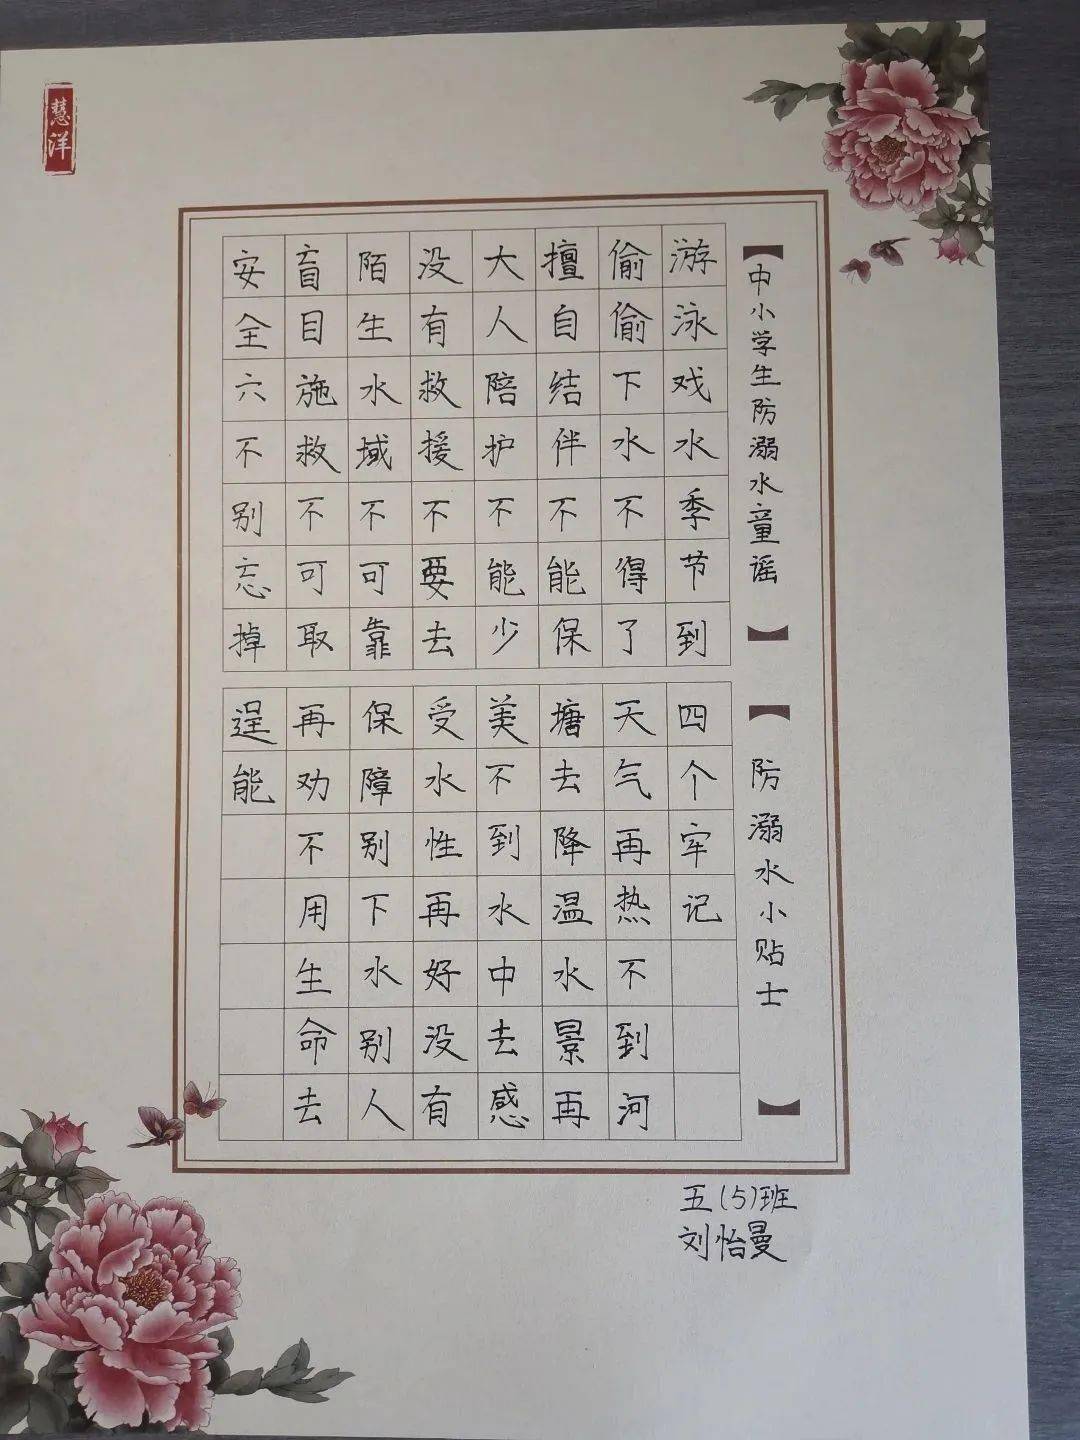 慧洋
【中小学生防溺水童谣】
游泳戏水季节到
偷偷下水不得了
擅自结伴不能保
大人陪护不能少
没有救援不要去
陌生水域不可靠
盲目施救不可取
安全六不别忘掉
【防溺水小贴士】
四个牢记
天气再热不到河
塘去降温水景再
美不到水中去感
受水性再好没有
保障别下水别人
再劝不用生命去
逞能
五(5)班
刘怡曼